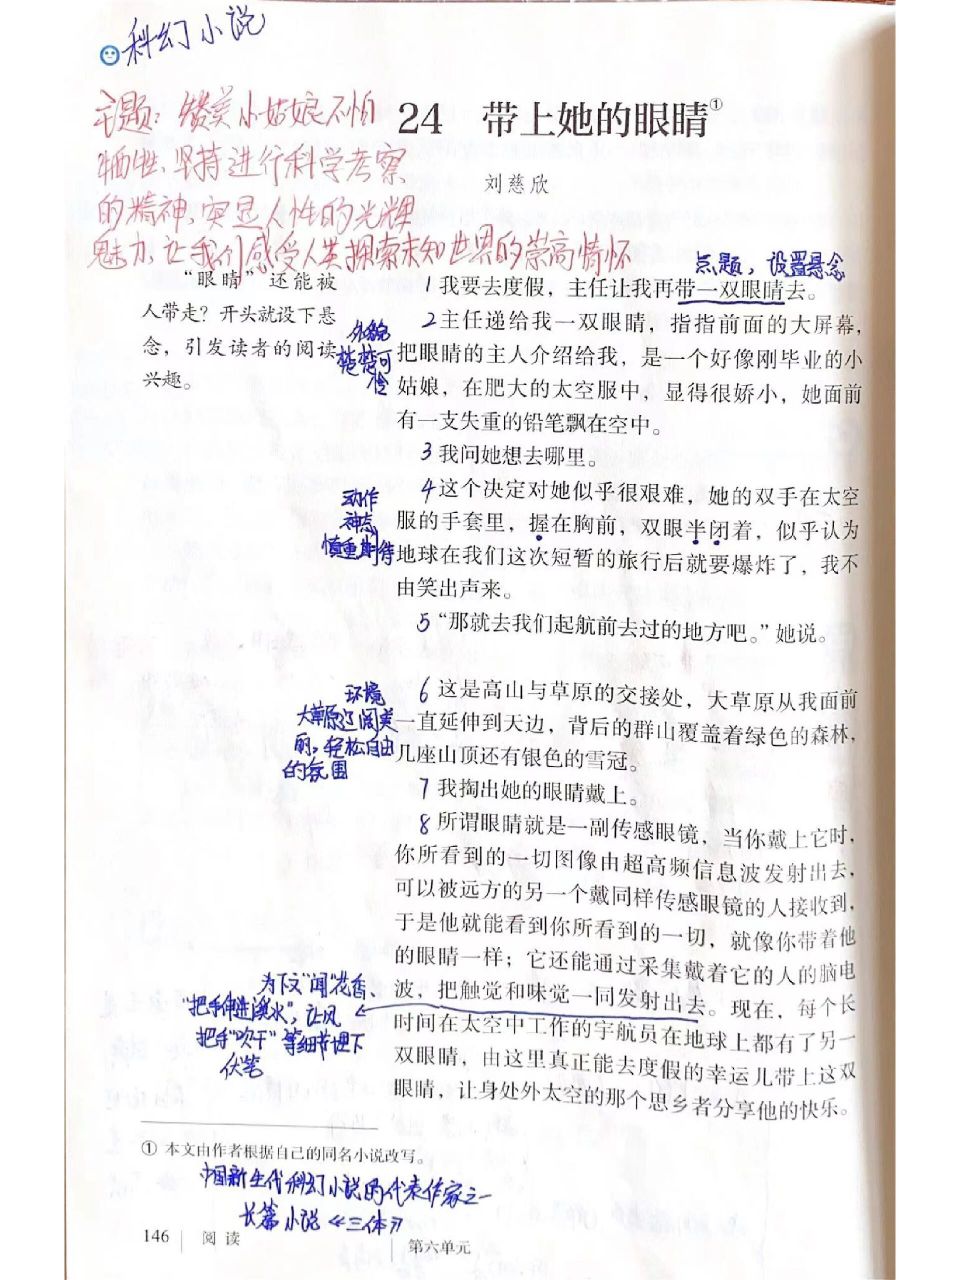 科幻小说
主题：赞美小姑娘不怕
牺牲、坚持进行科学考察
的精神，突显人性的光辉
魅力，让我们感受人类探索未知世界的崇高情怀
24 带上她的眼睛①
刘慈欣
“眼睛”还能被
人带走？开头就设下悬
念，引发读者的阅读
兴趣。
点题，设置悬念
1 我要去度假，主任让我再带一双眼睛去。
2 主任递给我一双眼睛，指指前面的大屏幕，
把眼睛的主人介绍给我，是一个好像刚毕业的小
姑娘，在肥大的太空服中，显得很娇小，她面前
有一支失重的铅笔飘在空中。
外貌
楚楚可
怜
3 我问她想去哪里。
4 这个决定对她似乎很艰难，她的双手在太空
服的手套里，握在胸前，双眼半闭着，似乎认为
地球在我们这次短暂的旅行后就要爆炸了，我不
由笑出声来。
动作
神态
慎重期待
5 “那就去我们起航前去过的地方吧。”她说。
6 这是高山与草原的交接处，大草原从我面前
一直延伸到天边，背后的群山覆盖着绿色的森林，
几座山顶还有银色的雪冠。
环境
大草原辽阔美
丽，轻松自由
的氛围
7 我掏出她的眼睛戴上。
8 所谓眼睛就是一副传感眼镜，当你戴上它时，
你所看到的一切图像由超高频信息波发射出去，
可以被远方的另一个戴同样传感眼镜的人接收到，
于是他就能看到你所看到的一切，就像你带着他
的眼睛一样；它还能通过采集戴着它的人的脑电
波，把触觉和味觉一同发射出去。现在，每个长
时间在太空中工作的宇航员在地球上都有了另一
双眼睛，由这里真正能去度假的幸运儿带上这双
眼睛，让身处外太空的那个思乡者分享他的快乐。
为下文“闻”花香、
“把手伸进溪水”，让风
把手“吹干”等细节埋下
伏笔
① 本文由作者根据自己的同名小说改写。
中国新生代科幻小说的代表作家之一
长篇小说《三体》
146 阅读
第六单元